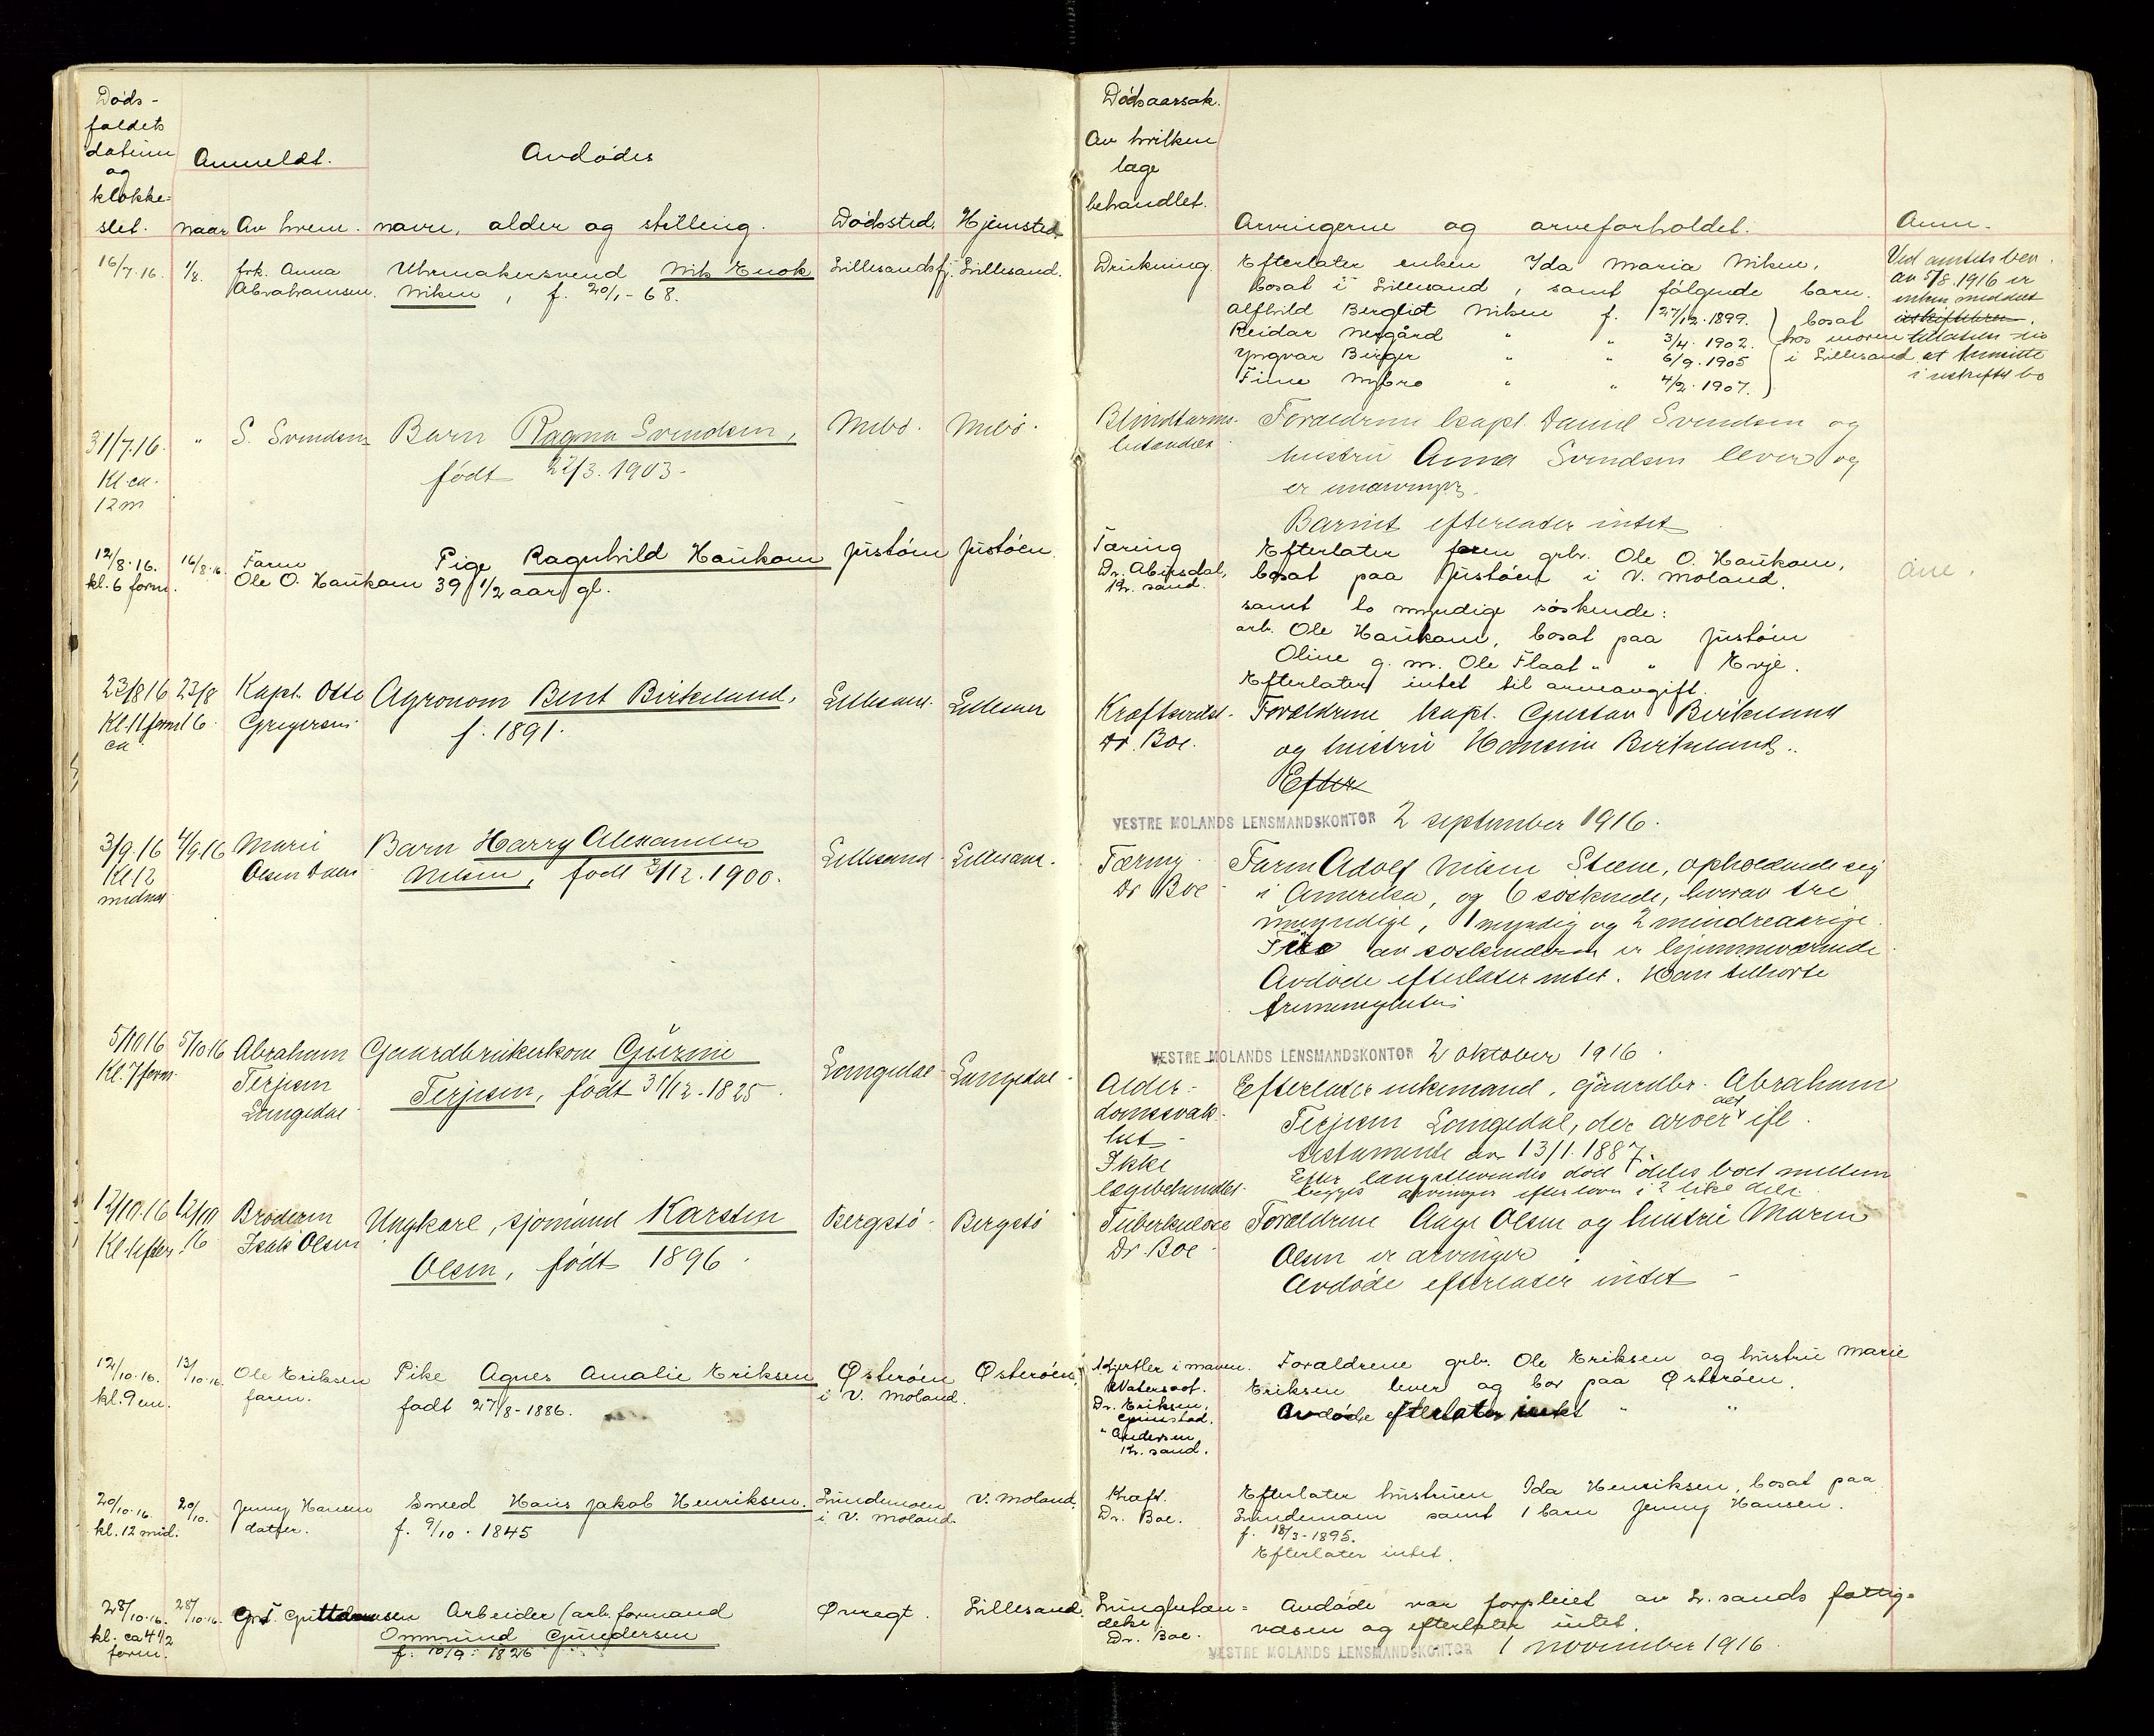 Døds-
faldets
datum
og
klokke-
slet.
Anmeldt.
naar Av hvem.
Avdødes
navn, alder og stilling.
Dødssted. Hjemsted.
Dødsaarsak.
Av hvilken
læge
behandlet.
Arvingerne og arveforholdet.
Anm.
16/7.16. 1/8. frk. Anna
Abrahamsen.
Uhrmakersvend Nils Enok
Nilsen, f. 20/1-68.
Lillesandsfj. Lillesand.
Drukning.
Efterlater enken Ida Maria Nilsen,
bosat i Lillesand, samt følgende barn.
Alfhild Bergliot Nilsen f. 27/12.1899.
Reidar Nergård " " 3/4.1902.
Yngvar Birger " " 6/9.1905
Finn Nybro " " 4/2.1907.
bosat
hos moren
i Lillesand
Ved amtets bev.
av 5/8.1916 er
enken meddelt
tillatelse til
at hensitte
i uskiftet bo
31/7.16.
Kl. ca.
12 m
" S. Svendsen
Barn Ragna Svendsen,
født 27/3.1903.
Mebø. Mebø.
Blindtarms-
betændelse
Forældrene kapt. Daniel Svendsen og
hustru Anna Svendsen lever og
er
Barnet efterlater intet
12/8.16.
kl. 6 form.
16/8.16. Faren
Ole O. Haukom
Pige Ragnhild Haukom
39 1/2 aar gl.
Justøen Justøen.
Tæring
Dr. Abinsdal,
Kr. sand.
Efterlater faren grbr. Ole O. Haukom,
bosat paa Justøen i V. Moland.
samt to myndige søskende:
arb. Ole Haukom, bosat paa Justøen
Oline g. m. Ole Flaat " " Evje.
Efterlater intet til arveavgift.
23/8 16
Kl. 11 form
ca.
23/8
16.
Kapt. Otto
Gregersen
Agronom Bent Birkelund,
f. 1891.
Lillesand. Lillesand
Kræftsvulst.
Dr. Boe.
Forældrene kapt. Gustav Birkelund
og hustru Hansine Birkelund.
Efter
VESTRE MOLANDS LENSMANDSKONTOR 2 september 1916.
3/9.16
Kl 12
midnat
4/9.16 Marie
Olsen
Barn Harry Alexander
Nilsen, født 3/12.1900.
Lillesand. Lillesand.
Tæring.
Dr Boe
Faren Adolf Nilsen Steene, opholdende sig
i Amerika, og 6 søskende, hvorav tre
umyndige, 1 myndig og 2 mindreaarige.
av søskenderne er hjemmeværende
Avdøde efterlater intet. Han tilhørte
frimenigheten
5/10 16
Kl. 7 form.
5/10 16 Abraham
Terjesen
Langedal
Gaardbrukerkone Gurine
Terjesen, født 31/12.1825.
Langedal Langedal.
VESTRE MOLANDS LENSMANDSKONTOR 2 oktober 1916.
Alder-
domssvak-
het
Ikke
lægebehandlet.
Efterlater enkemand, gaardbr. Abraham
Terjesen Langedal, der arver alt ifl.
testamente av 13/1.1887.
Efter længstlevendes død deles boet mellem
begges arvinger efter loven i 2 like dele
12/10.16
12/10
16
Broderen
Isak Olsen
Ungkarl, sjømand Karsten
Olsen, født 1896.
Bergstø. Bergstø
Tuberkulose
Dr. Boe.
Forældrene Aage Olsen og hustru Maren
Olsen er arvinger
Avdøde efterlater intet
12/10.16.
kl. 9 em.
13/10.16. Ole Eriksen
faren.
Pike Agnes Amalie Eriksen
født 27/8-1886.
Østerøen
i V. Moland.
Østerøen.
i maven.
Vatersoot.
Dr. Eriksen,
Grimstad.
" Andersen
Kr. sand.
Forældrene grbr. Ole Eriksen og hustru Marie
Eriksen lever og bor paa Østerøen.
Avdøde efterlater intet " "
20/10.16.
kl. 12 mid.
20/10. Jenny Hansen
datter.
Smed Hans Jakob Henriksen.
f. 9/10.1845
Lindemoen
i V. Moland.
V. Moland.
Kræft.
Dr. Boe.
Efterlater hustruen Ida Henriksen, bosat paa
Lindemoen samt 1 barn Jenny Hansen.
f. 18/3-1895.
Efterlater intet.
28/10.16.
kl. ca 4 1/2
form.
28/10.16.
Arbeider (arb. formand
Ommund Gundersen
f. 10/9.1826
Øvregt. Lillesand.
Lungebetæn-
delse
Dr. Boe.
Avdøde var forpleiet av L. sands fattig-
væsen og efterlater intet.
VESTRE MOLANDS LENSMANDSKONTOR 1 november 1916.